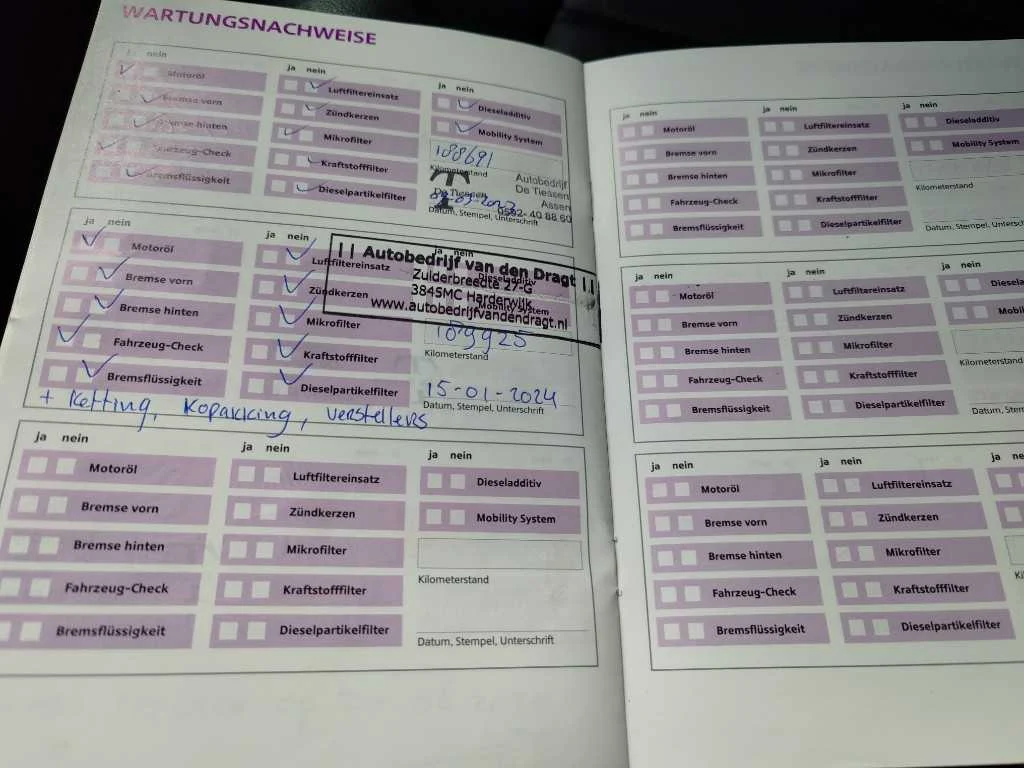 WARTUNGSNACHWEISE
nein
Motoröl
Bremse vorn
Bremse hinten
Fahrzeug-Check
Bremsflüssigkeit
ja nein
Luftfiltereinsatz
Zündkerzen
Mikrofilter
Kraftstofffilter
Dieselpartikelfilter
ja nein
Dieseladditiv
Mobility System
188691
Kilometerstand
Autobedrijf
De Tiessen
Assen
0592-40 88 60
De Tiessen
Datum, Stempel, Unterschrift
ja nein
Motoröl
Bremse vorn
Bremse hinten
Fahrzeug-Check
Bremsflüssigkeit
ja nein
Luftfiltereinsatz
Zündkerzen
Mikrofilter
Kraftstofffilter
Dieselpartikelfilter
ja nein
Dieseladditiv
Mobility System
|| Autobedrijf van den Dragt ||
Zuiderbreedte 27-G
3845MC Harderwijk
www.autobedrijfvandendragt.nl
189925
Kilometerstand
15-01-2024
Datum, Stempel, Unterschrift
+ Ketting, Kopakking, verstellers
ja nein
Motoröl
Bremse vorn
Bremse hinten
Fahrzeug-Check
Bremsflüssigkeit
ja nein
Luftfiltereinsatz
Zündkerzen
Mikrofilter
Kraftstofffilter
Dieselpartikelfilter
ja nein
Dieseladditiv
Mobility System
Kilometerstand
Datum, Stempel, Unterschrift
ja nein
Motoröl
Bremse vorn
Bremse hinten
Fahrzeug-Check
Bremsflüssigkeit
ja nein
Luftfiltereinsatz
Zündkerzen
Mikrofilter
Kraftstofffilter
Dieselpartikelfilter
ja nein
Dieseladditiv
Mobility System
Kilometerstand
Datum, Stempel, Unterschr
ja nein
Motoröl
Bremse vorn
Bremse hinten
Fahrzeug-Check
Bremsflüssigkeit
ja nein
Luftfiltereinsatz
Zündkerzen
Mikrofilter
Kraftstofffilter
Dieselpartikelfilter
ja nein
Diesela
Mobil
Kilometerstand
Datum, Stem
ja nein
Motoröl
Bremse vorn
Bremse hinten
Fahrzeug-Check
Bremsflüssigkeit
ja nein
Luftfiltereinsatz
Zündkerzen
Mikrofilter
Kraftstofffilter
Dieselpartikelfilter
ja ne